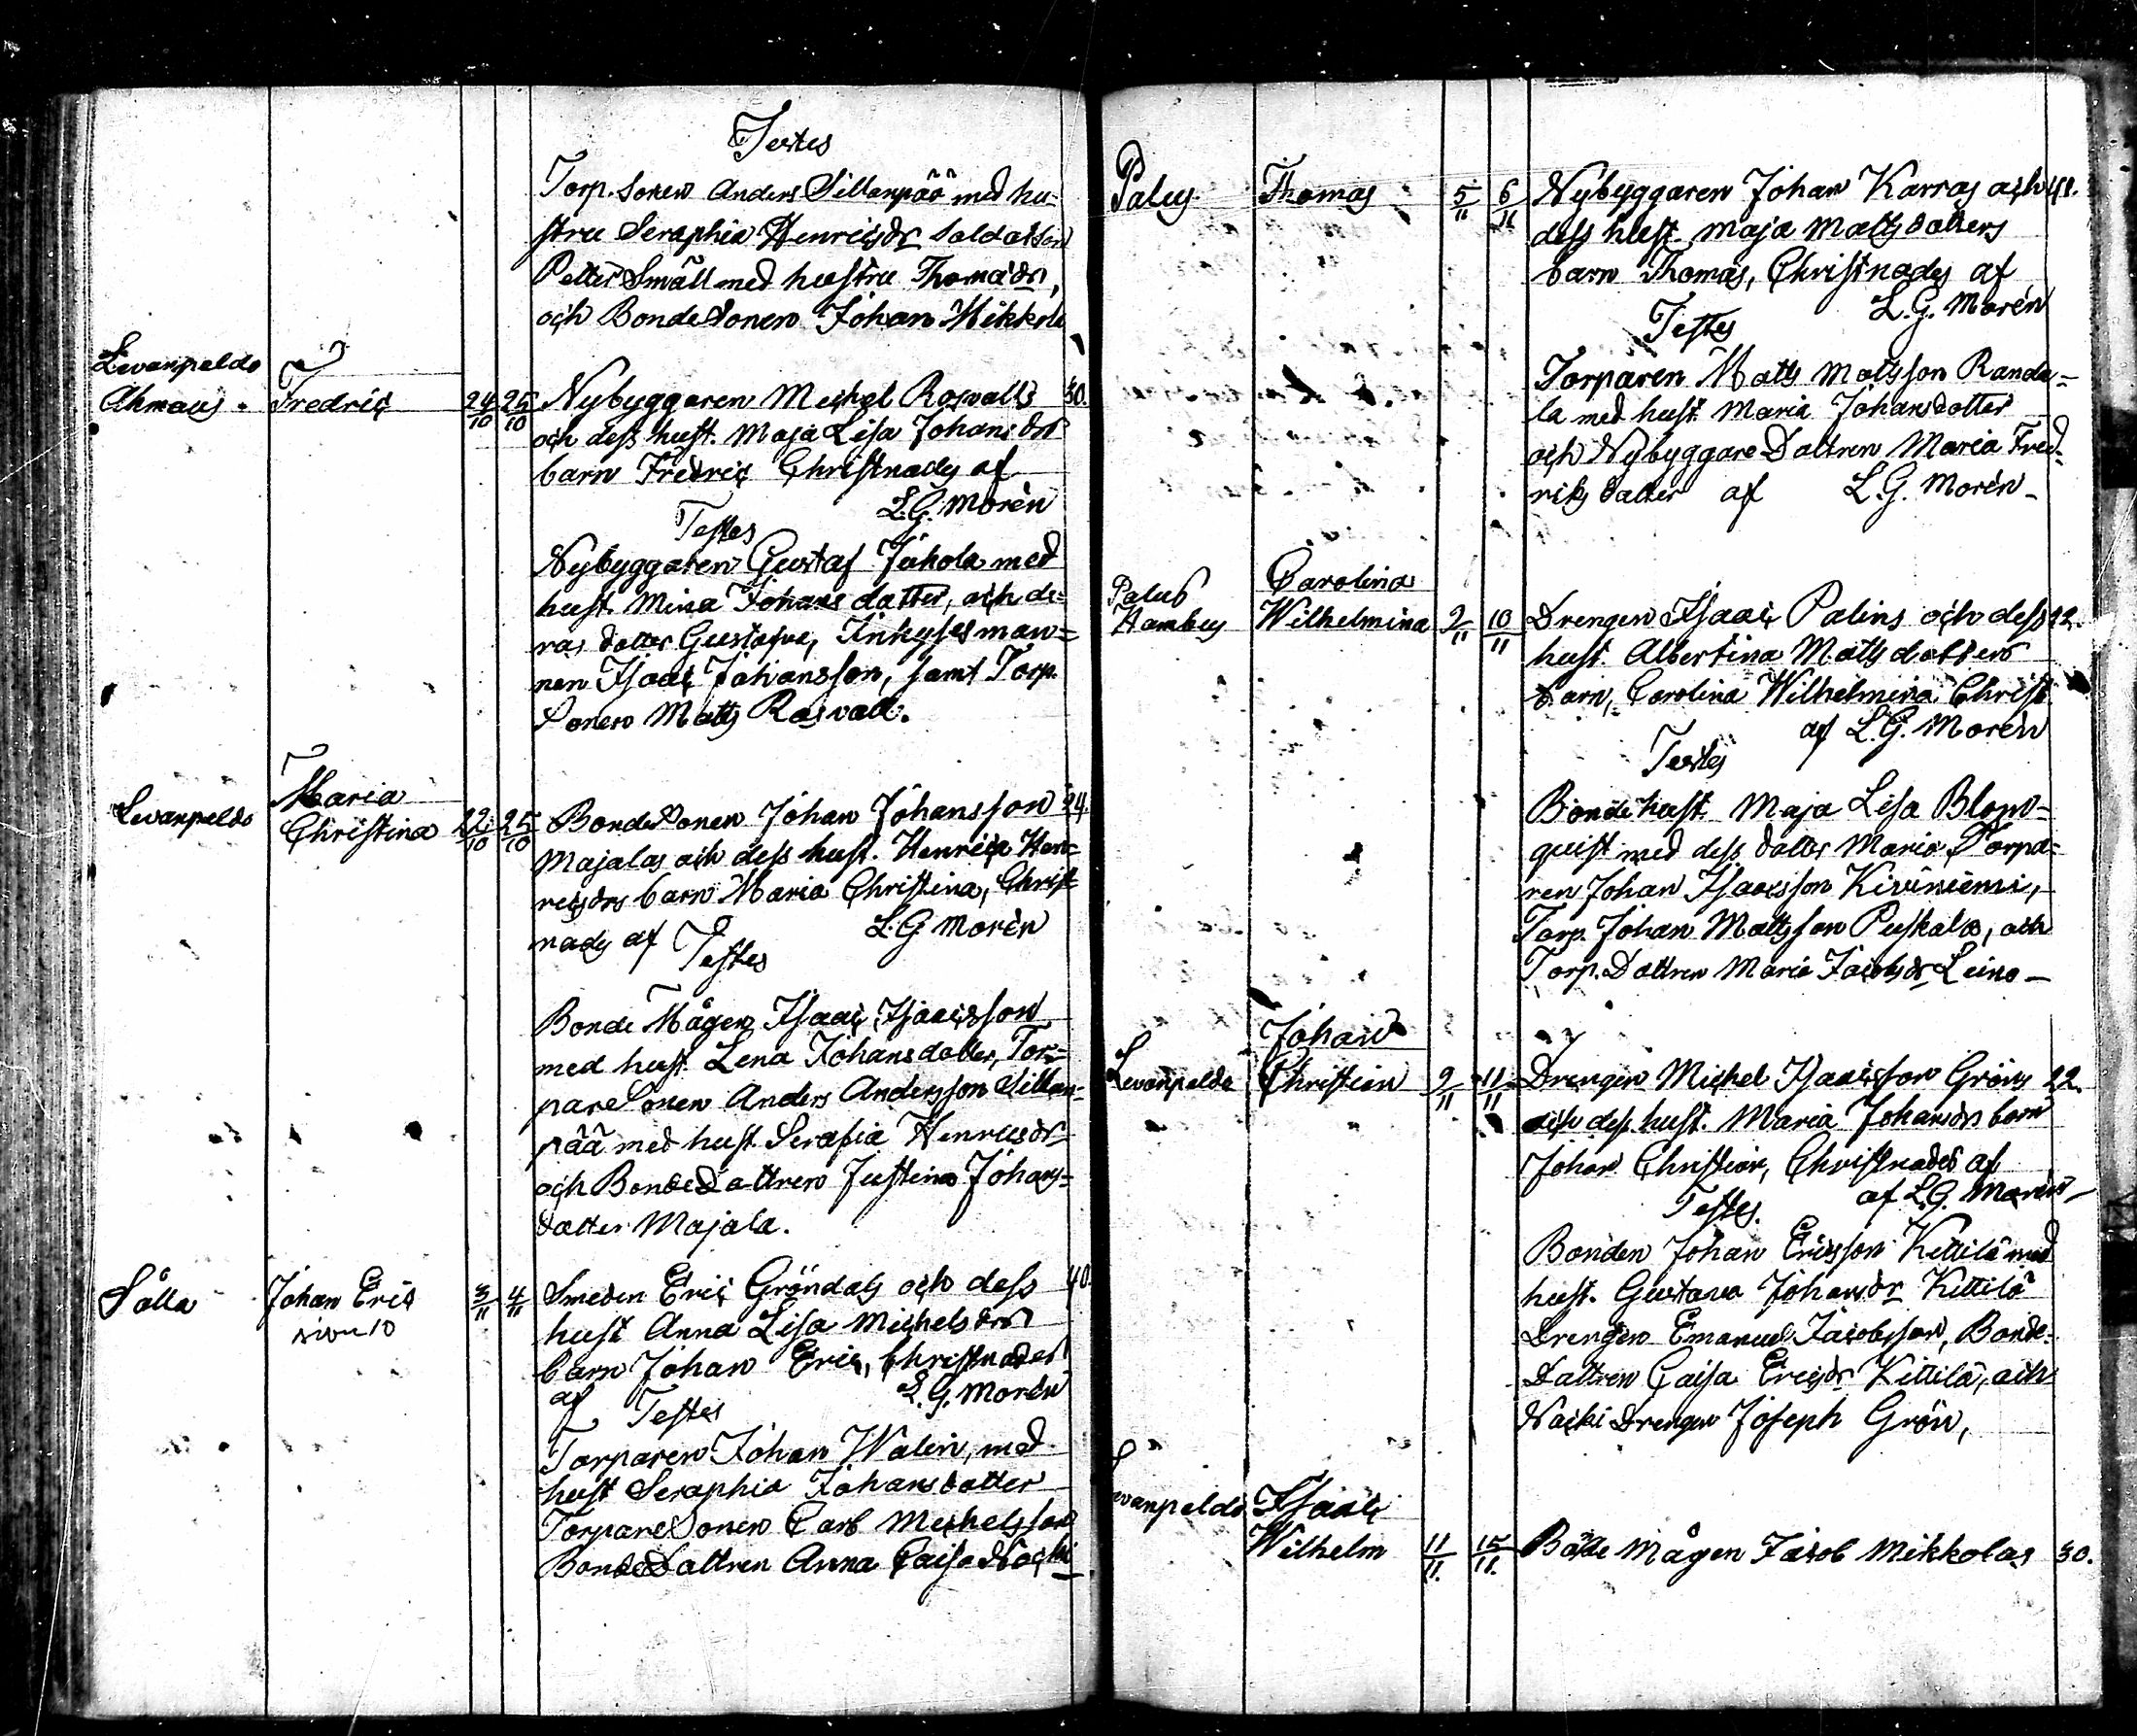 Testes
Torp. Sonen Anders Sillanpää med hu=
stru Seraphia Henricsdr Soldatson
Petter Smäll med hustru Thomasdr,
och Bonde Sonen Johan Mikkola
Levanpeldo
Ahmaus. Fredric 24/10 25/10 Nybyggaren Michel Rosvalls 30.
och dess hust. Maja Lisa Johansdrs
barn Fredric Christnades af
L.G. Morén
Testes
Nybyggaren Gustaf Juhola med
hust. Mina Johans dotter, och de=
ras dotter Gustafva, Inhyses man=
nen Isaac Johansson, samt Torp.
Sonen Matts Rosvall.
Maria
Levanpeldo Christina 22/10 25/10 Bonde Sonen Johan Johansson 24.
Majalas och dess hust. Henrica Hen=
ricsdrs barn Maria Christina, Christ=
nades af L.G. Morén
Testes
Bonde Mågen Isaac Isaacsson
med hust. Lena Johansdotter, Tor=
pare Sonen Anders Andersson Sillan=
pää med hust. Serafia Henricsdr
och Bonde Dottren Justina Johans=
dotter Majala.
Salla Johan Eric 3/11 4/11 Smeden Eric Gröndals och dess 40.
sivu 10
hust Anna Lisa Michelsdrs
barn Johan Eric, Christnades
af L.G. Morén
Testes
Torparen Johan Walin, med
hust Seraphia Johansdotter
Torpare Sonen Carl Michelsson
Bonde Dottren Anna Caisa Nacki
Palus Thomas 5/11 6/11 Nybyggaren Johan Karras och
dess hust. Maja Matts dotters
barn Thomas, Christnades af
L.G. Morén
Testes
Torparen Matts Matsson Randa=
la med hust. Maria Johansdotter
och Nybyggare Dottren Maria Fred=
riks dotter af L.G. Morén
Palus Carolina
Hambus Wilhelmina 9/11 10/11 Drengen Isaac Palins och dess 22.
hust. Albertina Matts dotters
barn, Carolina Wilhelmina. Christ
af L.G. Morén
Testes
Bonde hust. Maja Lisa Blom=
quist med dess dotter Maria Torpa=
ren Johan Isaacsson Kiviniemi,
Torp. Johan Mattsson Puskala, och
Torp. Dottren Maria Jacobsdr Leino
Johan
Levanpeldo Christian 9/11 11/11 Drengen Michel Isaacsson Gröns 22.
och dess hust. Maria Johansdrs barn
Johan Christian, Christnades af
af L.G. Morén
Testes.
Bonden Johan Ericsson Kittilä med
hust. Gustava Johansdr Kittilä
Drengen Emanuel Jacobsson, Bonde=
Dottren Caisa Ericsdr Kittilä, och
Nacki Drengen Joseph Grön,
Levanpeldo Isaac
Wilhelm 11/11. 15/11. Bonde Mågen Jacob Mikkolas 30.